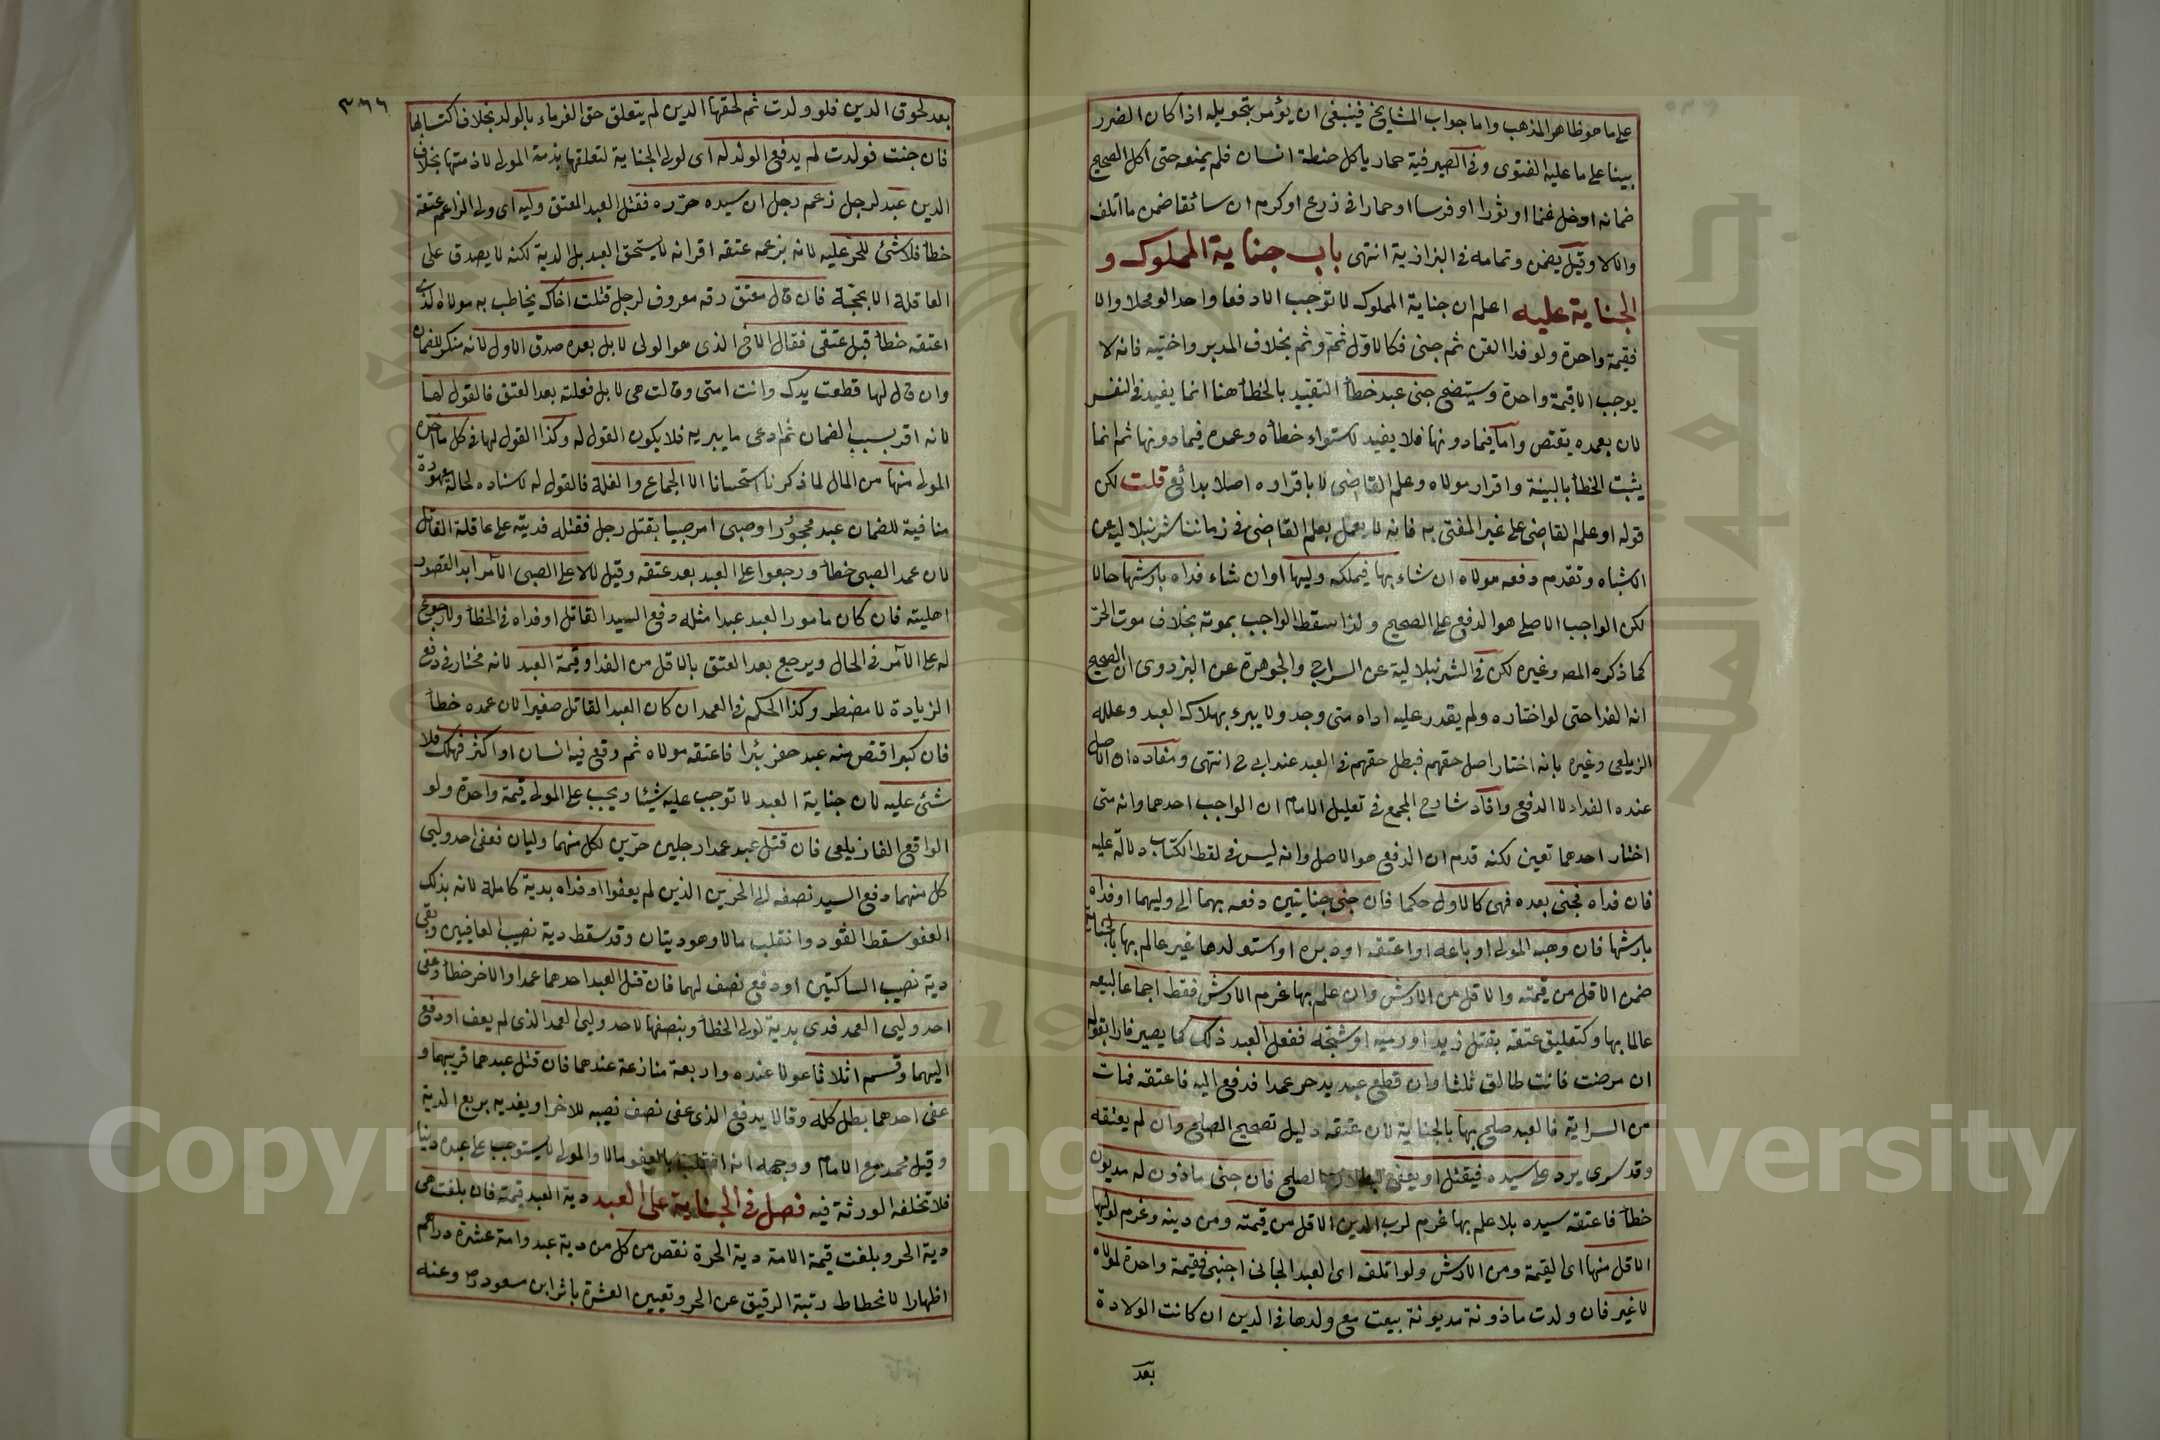 على ما هو ظاهر المذهب واما جواب المشايخ فينبغي ان يؤمر بتحويله اذا كان الضرر
بينا على ما عليه الفتوى وفي الصيرفية حمار ياكل حنطة انسان فلم يمنعه حتى اكل الصحيح
ضمانه ادخل غنما او ثورا او فرسا او حمارا في زرع او كرم ان سائقا ضمن ما اتلف
والا لا وقيل يضمن وتمامه في البزازية انتهى باب جناية المملوك و
الجناية عليه اعلم ان جناية المملوك لا توجب الا دفعا واحدا لو محلا والا
فقيمة واحدة ولو فدا القن ثم جنى فكالاول ثم وثم بخلاف المدبر واختيه فانه لا
يوجب الا قيمة واحدة وسيتضح جنى عبد خطأ التقييد بالخطأ هنا انما يفيد في النفس
لان بعمده يقتص واما فيما دونها فلا يفيد لاستواء خطأه وعمده فيما دونها ثم انما
يثبت الخطأ بالبينة واقرار مولاه وعلم القاضي لا باقراره اصلا بدائع قلت لكن
قوله او علم القاضي على غير المفتى به فانه لا يعمل بعلم القاضي في زماننا شرنبلالية عن
الاشباه وتقدم دفعه مولاه ان شاء بها فيملكه وليها او ان شاء فداه بارشها حالا
لكن الواجب الاصلي هو الدفع على الصحيح ولذا سقط الواجب بموته بخلاف موت الحر
كما ذكره المصـ وغيره لكن في الشرنبلالية عن السراج والجوهرة عن البزدوي ان الصحيح
انه الفدا حتى لو اختاره ولم يقدر عليه اداه متى وجد ولا يبرء بهلاك العبد وعلله
الزيلعي وغيره بانه اختار اصل حقهم فبطل حقهم في العبد عند ابي ح انتهى ومفاده ان الاصل
عنده الفداء لا الدفع وافاد شارح المجمع في تعليل الامام ان الواجب احدهما وانه متى
اختار احدهما تعين لكنه قدم ان الدفع هو الاصل وانه ليس في لفظ الكتاب دلالة عليه
فان فداه فجنى بعده فهي كالاولى حكما فان جنى جنايتين دفعه بهما الى وليهما او فداه
بارشها فان وهبه المولى او باعه او اعتقه او دبره او استولدها غير عالم بها بالجناية
ضمن الاقل من قيمته والاقل من الارش وان علم بها غرم الارش فقط اجماعا لبيعه
عالما بها وكتعليق عتقه بقتل زيد او رميه او شجته ففعل العبد ذلك كما يصير فارا بقوله
ان مرضت فانت طالق ثلثا وان قطع عبد يد حر عمدا فدفع اليه فاعتقه فمات
من السراية فالعبد صلح بها بالجناية لان عتقه دليل تصحيح الصلح وان لم يعتقه
وقد سرى يرد على سيده فيقتل او يعفى لبطلان الصلح فان جنى ماذون له مديون
خطأ فاعتقه سيده بلا علم بها غرم لرب الدين الاقل من قيمته ومن دينه وغرم لوليها
الاقل منها اي القيمة ومن الارش ولو اتلفه اي العبد الجاني اجنبي فقيمة واحدة لمولاه
لا غير فان ولدت ماذونة مديونة بيعت مع ولدها في الدين ان كانت الولادة
بعد
٣٦٦
بعد لحوق الدين فلو ولدت ثم لحقها الدين لم يتعلق حق الغرماء بالولد بخلاف اكتسابها
فان جنت فولدت لم يدفع الولد له اي لولي الجناية لتعلقها بذمة المولى لا ذمتها بخلاف
الدين عبد لرجل زعم رجل ان سيده حرره فقتل العبد المعتق وليه اي ولي الزاعم عتقه
خطأ فلا شئ للحر عليه لانه بزعمه عتقه اقر انه لا يستحق العبد بل الدية لكنه لا يصدق على
العاقلة الا بحجة فان قال معتق رقه معروف لرجل قتلت اخاك يخاطب به مولاه الذي
اعتقه خطأ قبل عتقي فقال الاخ الذي هو الولي لا بل بعده صدق الاول لانه منكر للضمان
وان قال لها قطعت يدك وانت امتي وقالت هي لا بل فعلته بعد العتق فالقول لها
لانه اقر بسبب الضمان ثم ادعى ما يبريه فلا يكون القول له وكذا القول لها في كل ما اخذه
المولى منها من المال لما ذكرنا استحسانا الا الجماع والغلة فالقول له لاسناده لحالة معهودة
منافية للضمان عبد محجور او صبي امر صبيا بقتل رجل فقتله فديته على عاقلة القاتل
لان عمد الصبي خطأ ورجعوا على العبد بعد عتقه وقيل لا لا على الصبي الآمر ابدا لقصور
اهليته فان كان مامور العبد عبدا مثله دفع السيد القاتل او فداه في الخطأ ولا رجوع
له على الآمر في الحال ويرجع بعد العتق بالاقل من الفدا وقيمة العبد لانه مختار في دفع
الزيادة لا مضطر وكذا الحكم في العمد ان كان العبد القاتل صغيرا لان عمده خطأ
فان كبيرا اقتص منه عبد حفر بئرا فاعتقه مولاه ثم وقع فيه انسان او اكثر فهلك فلا
شئ عليه لان جناية العبد لا توجب عليه شيئا ويجب على المولى قيمة واحدة ولو
الواقع الفا زيلعي فان قتل عبد عمدا رجلين حرين لكل منهما وليان فعفى احد وليي
كل منهما دفع السيد نصفه الى الحرين الذين لم يعفوا او فداه بدية كاملة لانه بذلك
العفو سقط القود وانقلب مالا وهو ديتان وقد سقط دية نصيب العافيين وبقي
دية نصيب الساكتين او دفع نصف لهما فان قتل العبد احدهما عمدا والاخر خطأ وعفى
احد وليي العمد فدى بدية لولي الخطأ وبنصفها لاحد وليي العمد الذي لم يعف او دفع
اليهما وقسم اثلاثا عولا عنده واربعة منازعة عندهما فان قتل عبدهما قريبهما و
عفى احدهما بطل كله وقالا يدفع الذي عفى نصف نصيبه للاخر او يفديه بربع الدية
وقيل محمد مع الامام ووجهه انه انقلب بالعفو مالا والمولى لا يستوجب على عبده دينا
فلا تخلفه الورثة فيه فصل في الجناية على العبد دية العبد قيمته فان بلغت هي
دية الحر وبلغت قيمة الامة دية الحرة نقص من كل من دية عبد وامة عشرة دراهم
اظهارا لانحطاط رتبة الرقيق عن الحر وتعيين العشرة باثر ابن مسعود رض وعنه
Copyright © King Saud University